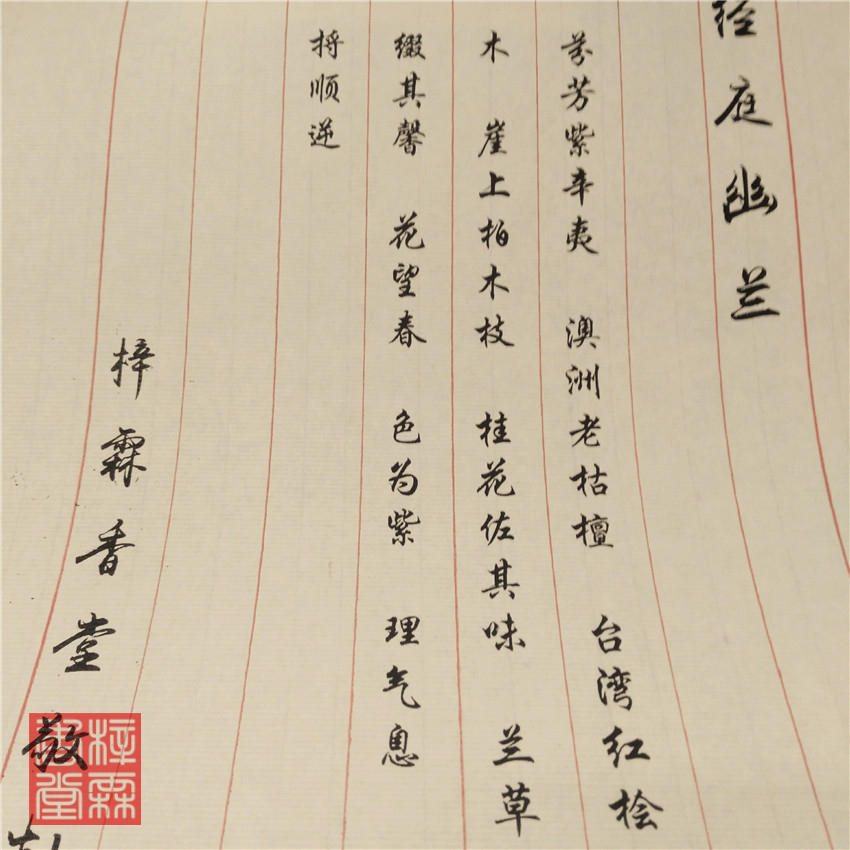 径庭幽兰
芬芳紫辛夷 澳洲老枯檀 台湾红桧
木 崖上柏木枝 桂花佐其味 兰草
缀其馨 花望春 色为紫 理气息
捋顺逆
梓霖香堂敬
梓霖
香堂